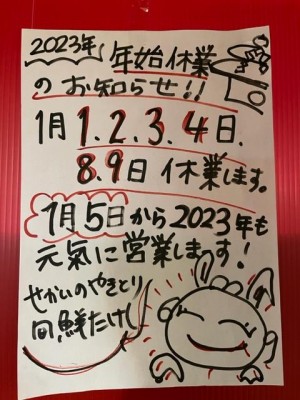 2023年
年始休業
のお知らせ!!
1月1.2.3.4日.
8.9日 休業します。
1月5日から2023年も
元氣に営業します!
せかいのやきとり
回鮮たけし